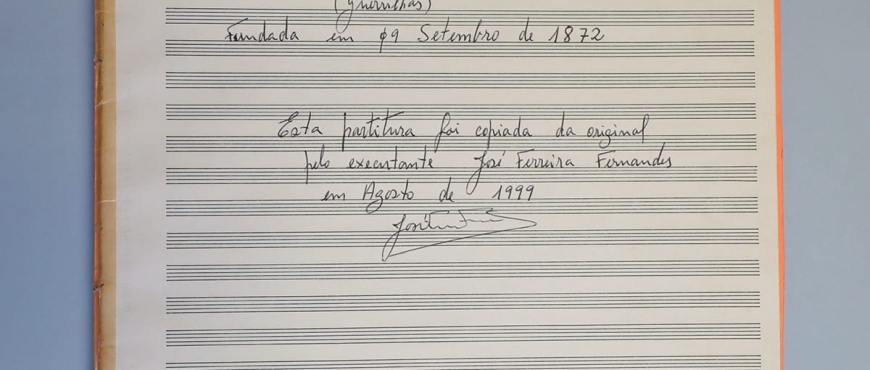 (Guerrilhas)
Fundada em 09 Setembro de 1872
Esta partitura foi copiada da original
pelo executante José Ferreira Fernandes
em Agosto de 1999